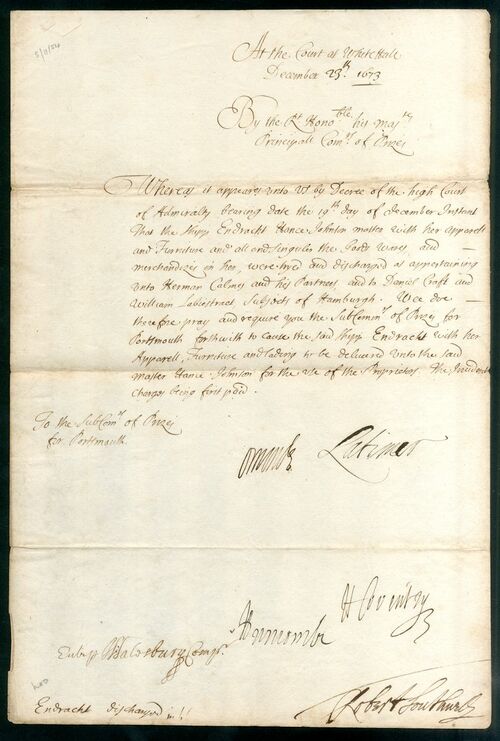 At the Court at Whitehall
December 23th. 1673
By the Rt. Honoble. his Maty
Principall Comrs of Prizes
Whereas it appeares unto Us by Decree of the high Court
of Admiralty bearing date the 19th day of december Instant
That the Shipp Endracht Hance Johnson master with her apparell
and Furniture and all and singuler the Goods Wares and —
merchandizes in her, were tryed and discharged as appertaining
unto Herman and his Partners and to Daniel Craft and
William Subjects of Hamburgh. Wee doe —
therefore pray and require you the SubComrs of Prizes for
Portsmouth forthwith to cause the said Shipp Endracht with her
Apparell, Furniture and lading to be delivered unto the said
master Hance Johnson for the use of the Proprietors The
Charges being first paid.
To the SubComrs of Prizes
for Portsmouth
Ormond Latimer
H Coventry
Robert Southwell
Endracht discharged